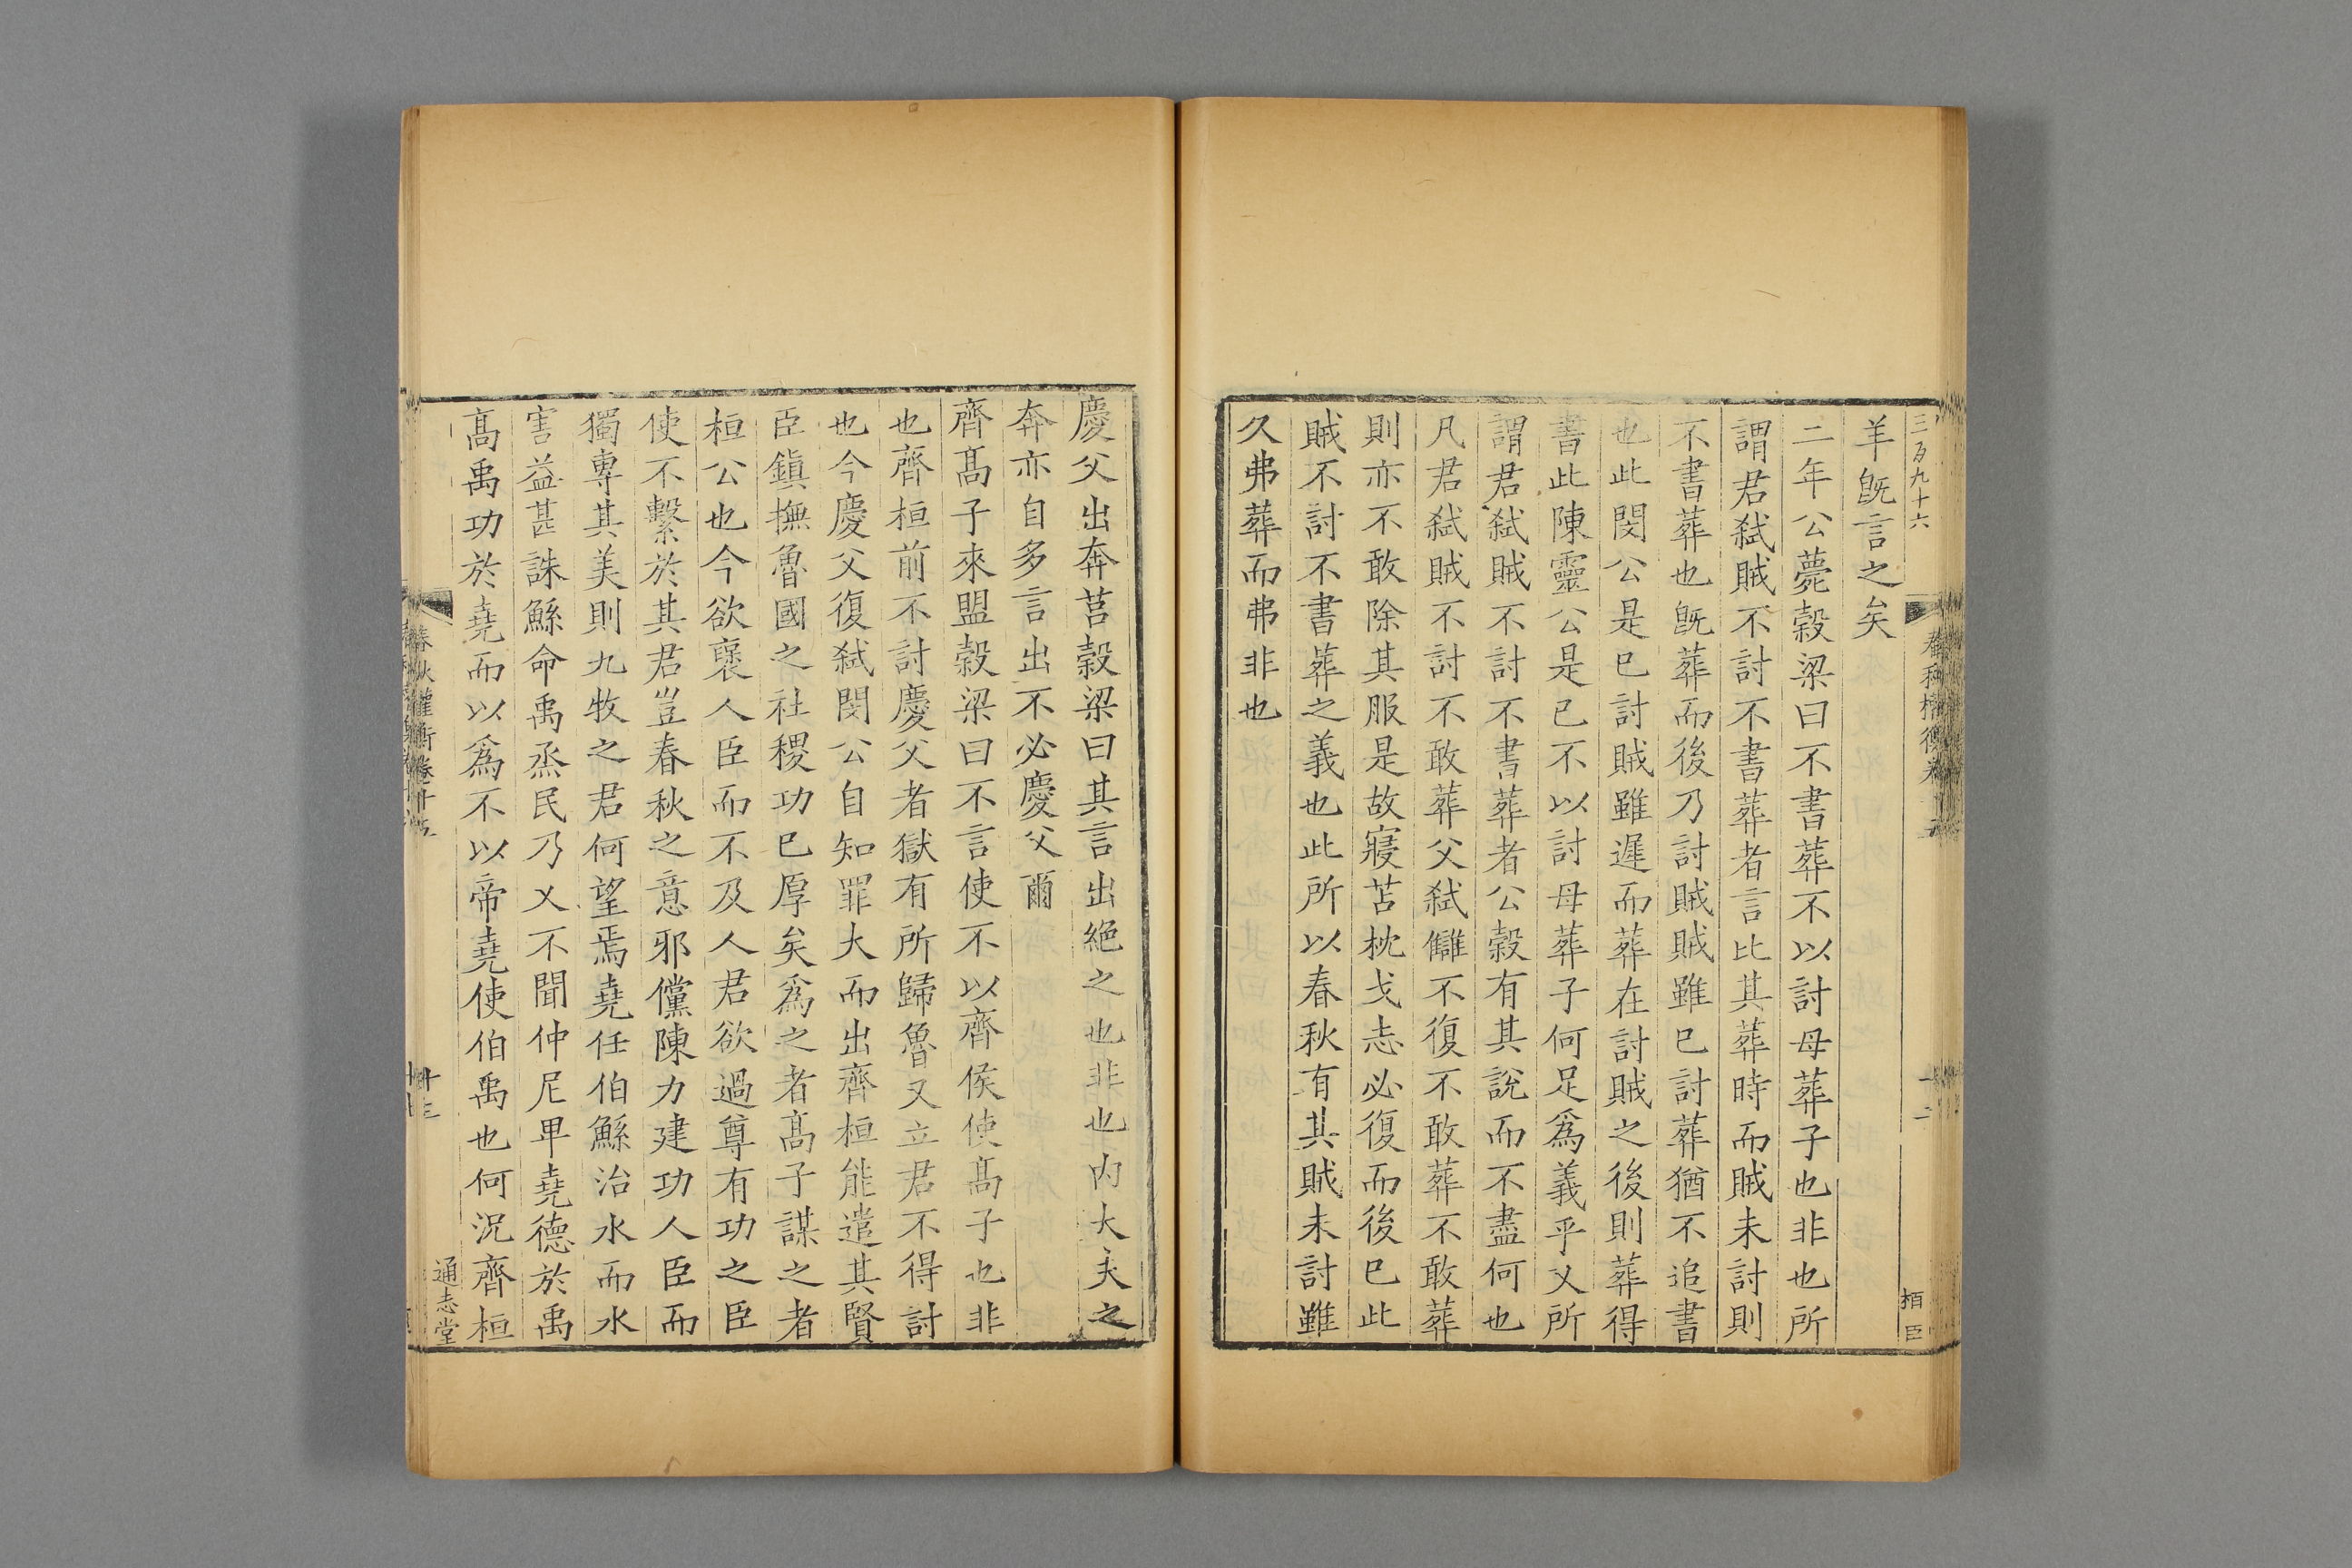 三百九十六
羊旣言之矣
二年公薨穀梁曰不書葬不以討母葬子也非也所
謂君弑賊不討不書葬者言比其葬時而賊未討則
不書葬也旣葬而後乃討賊賊雖已討葬猶不追書
也此閔公是已討賊雖遲而葬在討賊之後則葬得
書此陳靈公是已不以討母葬子何足爲義乎乂所
謂君弑賊不討不書葬者公穀有其說而不盡何也
凡君弑賊不討不敢葬父弑讎不復不敢葬不敢葬
則亦不敢除其服是故寢苫枕戈志必復而後已此
賊不討不書葬之義也此所以春秋有其賊未討雖
久弗葬而弗非也
栢臣
慶父出奔莒穀梁曰其言出絕之也非也內大夫之
奔亦自多言出不必慶父爾
齊髙子來盟穀梁曰不言使不以齊侯使髙子也非
也齊桓前不討慶父者獄有所歸魯又立君不得討
也今慶父復弑閔公自知罪大而出齊桓能遣其賢
臣鎭撫魯國之社稷功已厚矣爲之者髙子謀之者
桓公也今欲襃人臣而不及人君欲過尊有功之臣
使不繫於其君豈春秋之意邪儻陳力建功人臣而
獨專其美則九牧之君何望焉堯任伯鯀治水而水
害益甚誅鯀命禹烝民乃乂不聞仲尼卑堯德於禹
髙禹功於堯而以爲不以帝堯使伯禹也何況齊桓
春秋權衡卷十五
通志堂